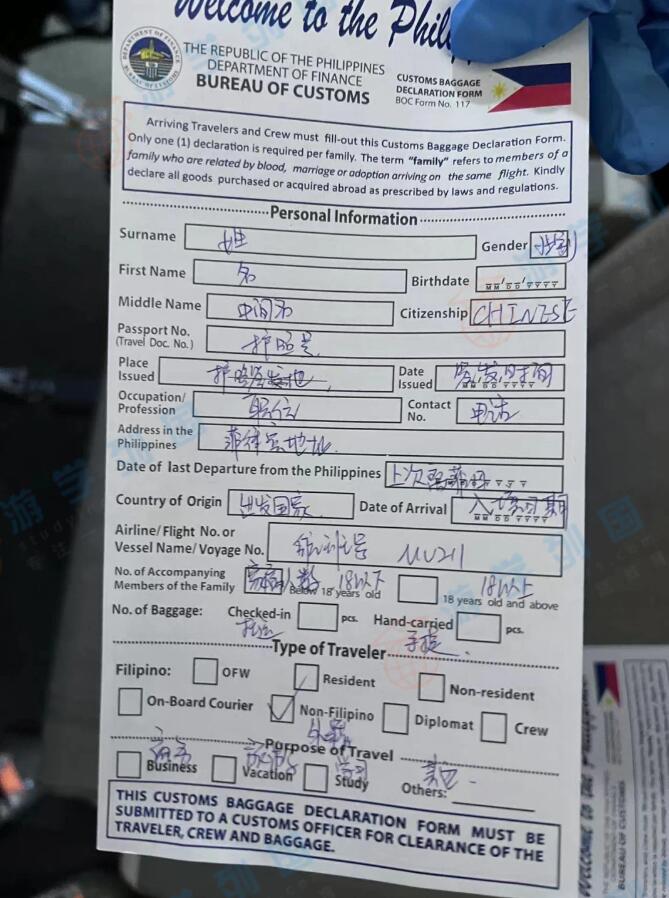 Welcome to the Phil
THE REPUBLIC OF THE PHILIPPINES
DEPARTMENT OF FINANCE
BUREAU OF CUSTOMS
CUSTOMS BAGGAGE
DECLARATION FORM
BOC Form No. 117
Arriving Travelers and Crew must fill-out this Customs Baggage Declaration Form.
Only one (1) declaration is required per family. The term "family" refers to members of a
family who are related by blood, marriage or adoption arriving on the same flight. Kindly
declare all goods purchased or acquired abroad as prescribed by laws and regulations.
Personal Information
Surname 姓 Gender 性别
First Name 名 Birthdate MM DD YYYY
Middle Name 中间名 Citizenship CHINESE
Passport No.
(Travel Doc. No.) 护照号
Place
Issued 护照签发地 Date
Issued 签发时间 MM DD YYYY
Occupation/
Profession 职位 Contact
No. 电话
Address in the
Philippines 菲律宾地址
Date of last Departure from the Philippines 上次
Country of Origin 出发国家 Date of Arrival 入境日期 MM DD YYYY
Airline/Flight No. or
Vessel Name/Voyage No. 航班号 MU211
No. of Accompanying
Members of the Family 人数 18以下 Below 18 years old 18以上 18 years old and above
No. of Baggage: Checked-in pcs. Hand-carried pcs.
托运 手提
Type of Traveler
Filipino: OFW Resident Non-resident
On-Board Courier Non-Filipino Diplomat Crew
外籍
Purpose of Travel
商务 学习 其他
Business Vacation Study Others:
THIS CUSTOMS BAGGAGE DECLARATION FORM MUST BE
SUBMITTED TO A CUSTOMS OFFICER FOR CLEARANCE OF THE
TRAVELER, CREW AND BAGGAGE.
Welcome to the Phil
BUREAU OF CUSTOMS